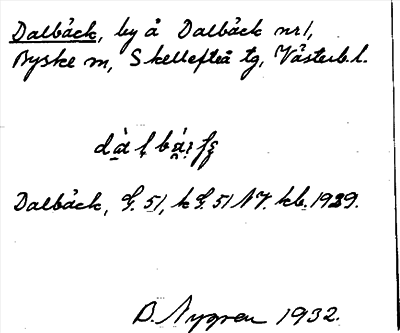 Dalbäck, by å Dalbäck nr 1,
Byske sn, Skellefteå tg, Västerb. l.
Dalbäck, G. 51, k G. 51 NV. kb. 1929.
B. Nygren 1932.